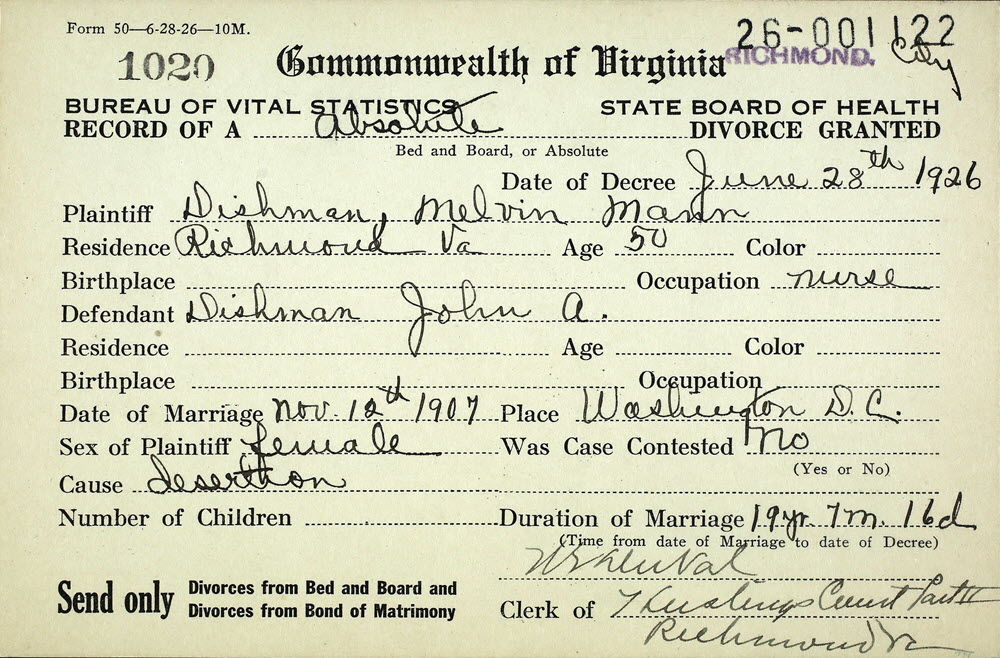 Form 50—6-28-26—10M.
26-001122
1020 Commonwealth of Virginia RICHMOND. City
BUREAU OF VITAL STATISTICS STATE BOARD OF HEALTH
RECORD OF A Absolute DIVORCE GRANTED
Bed and Board, or Absolute
Date of Decree June 28th 1926
Plaintiff Dishman, Melvin Mann
Residence Richmond Va Age 50 Color
Birthplace Occupation nurse
Defendant Dishman John A.
Residence Age Color
Birthplace Occupation
Date of Marriage Nov. 12th 1907 Place Washington D.C.
Sex of Plaintiff female Was Case Contested No
(Yes or No)
Cause desertion
Number of Children Duration of Marriage 19yr 7m. 16d
(Time from date of Marriage to date of Decree)
Send only Divorces from Bed and Board and
Divorces from Bond of Matrimony
Clerk of Hustings Court Part II
Richmond Va